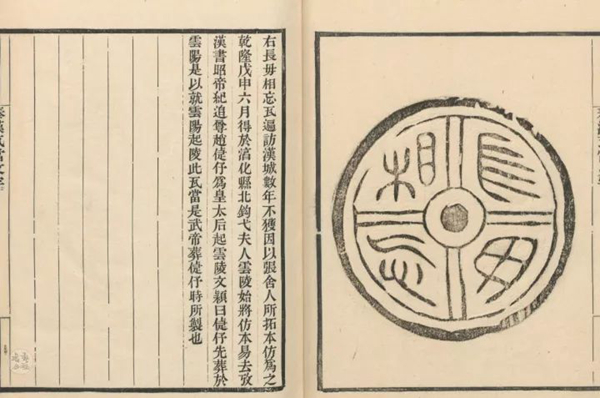 長毋
相忘
右長毋相忘瓦遍訪漢城數年不獲因以張舍人所拓本仿爲之
乾隆戊申六月得於湻化縣北鉤弋夫人雲陵始將仿本易去攷
漢書昭帝紀追尊趙倢伃爲皇太后起雲陵文穎曰倢伃先葬於
雲陽是以就雲陽起陵此瓦當是武帝葬倢伃時所製也